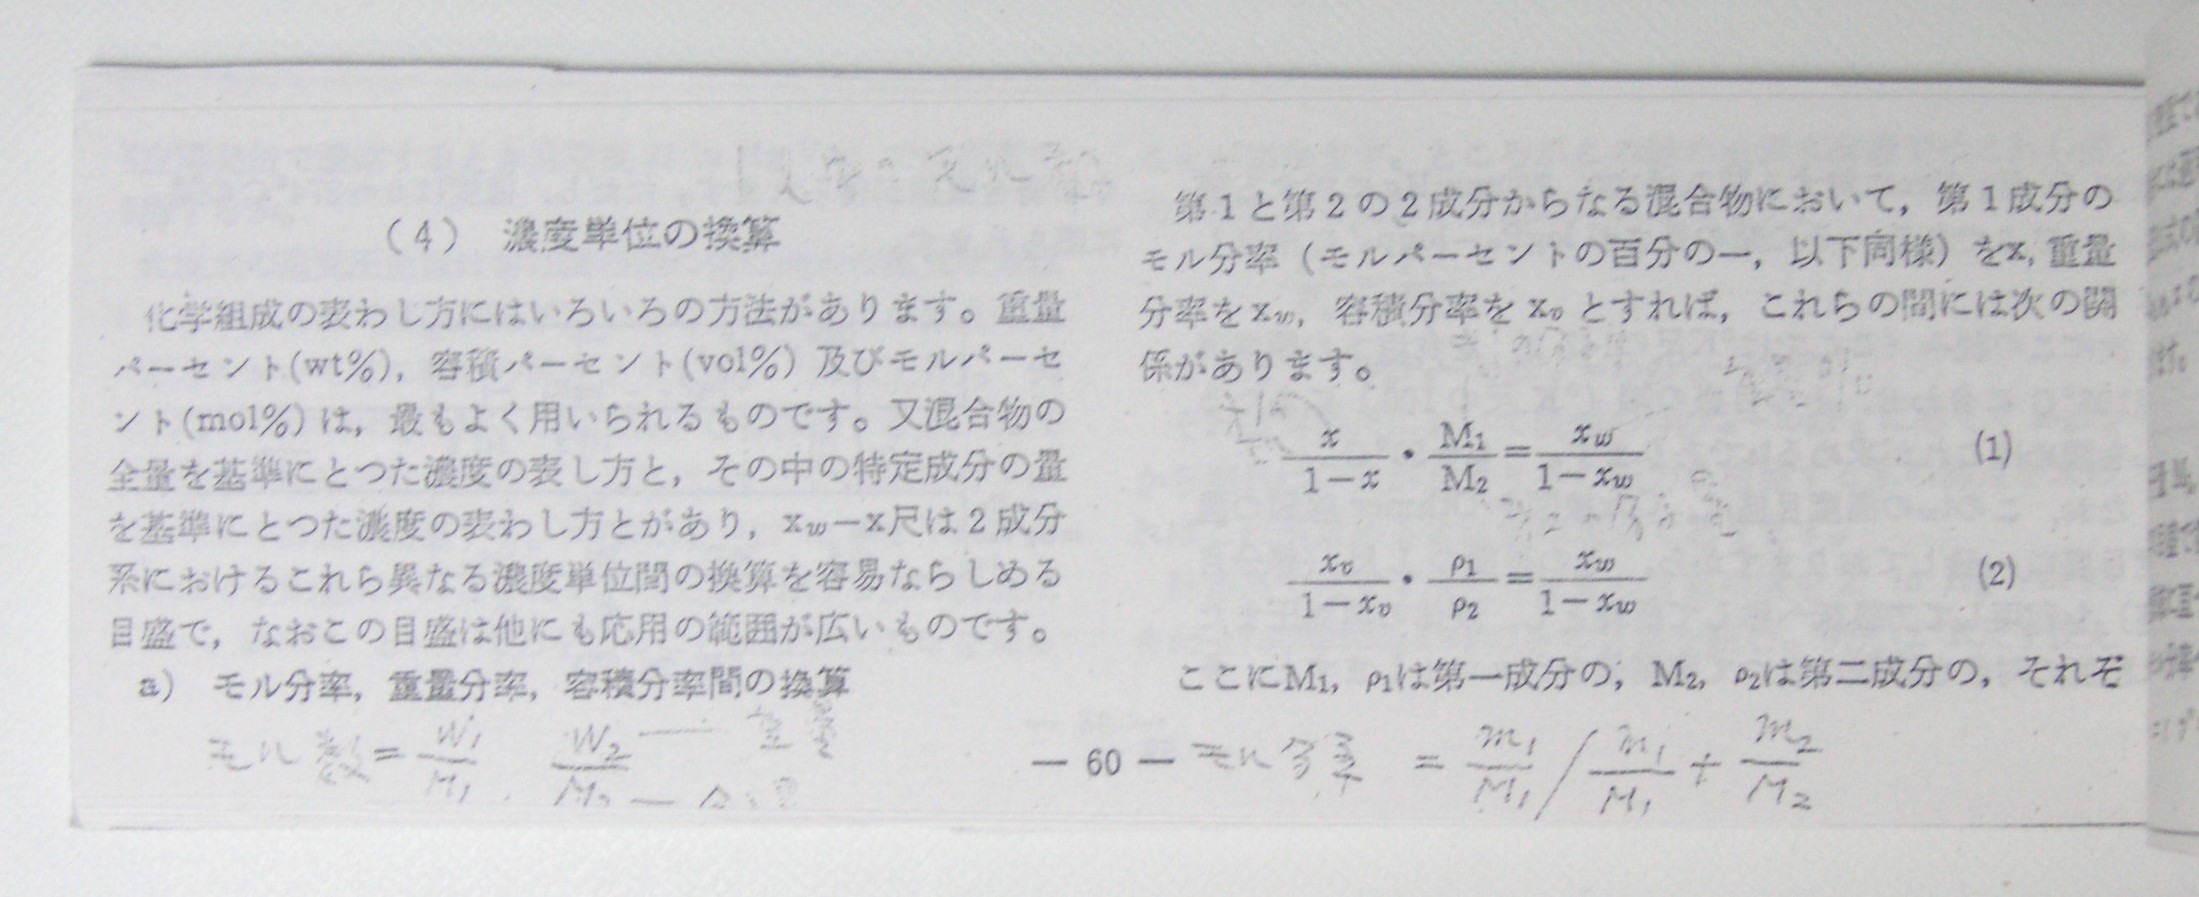 (4) 濃度単位の換算
化学組成の表わし方にはいろいろの方法があります。重量
パーセント(wt%), 容積パーセント(vol%) 及びモルパーセ
ント(mol%) は, 最もよく用いられるものです。又混合物の
全量を基準にとつた濃度の表し方と, その中の特定成分の量
を基準にとつた濃度の表わし方とがあり, xw−x尺は2成分
系におけるこれら異なる濃度単位間の換算を容易ならしめる
目盛で, なおこの目盛は他にも応用の範囲が広いものです。
a) モル分率, 重量分率, 容積分率間の換算
モル数 = W1/M1 W2/M2 — 重量
第1と第2の2成分からなる混合物において, 第1成分の
モル分率 (モルパーセントの百分の一, 以下同様) をx, 重量
分率をxw, 容積分率を xv とすれば, これらの間には次の関
係があります。
x/(1−x) · M1/M2 = xw/(1−xw) (1)
xv/(1−xv) · ρ1/ρ2 = xw/(1−xw) (2)
ここにM1, ρ1は第一成分の, M2, ρ2は第二成分の, それぞ
モル分率 = m1/M1 / m1/M1 + m2/M2
— 60 —